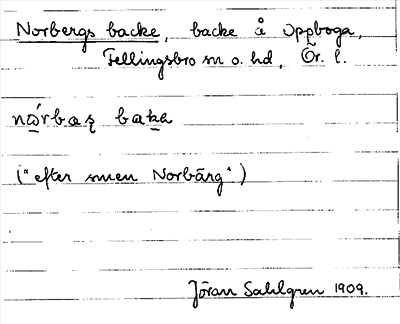 Norbergs backe, backe å Oppboga,
Fellingsbro sn o. hd, Ör. l.
("efter smen Norbärg")
Jöran Sahlgren 1909.